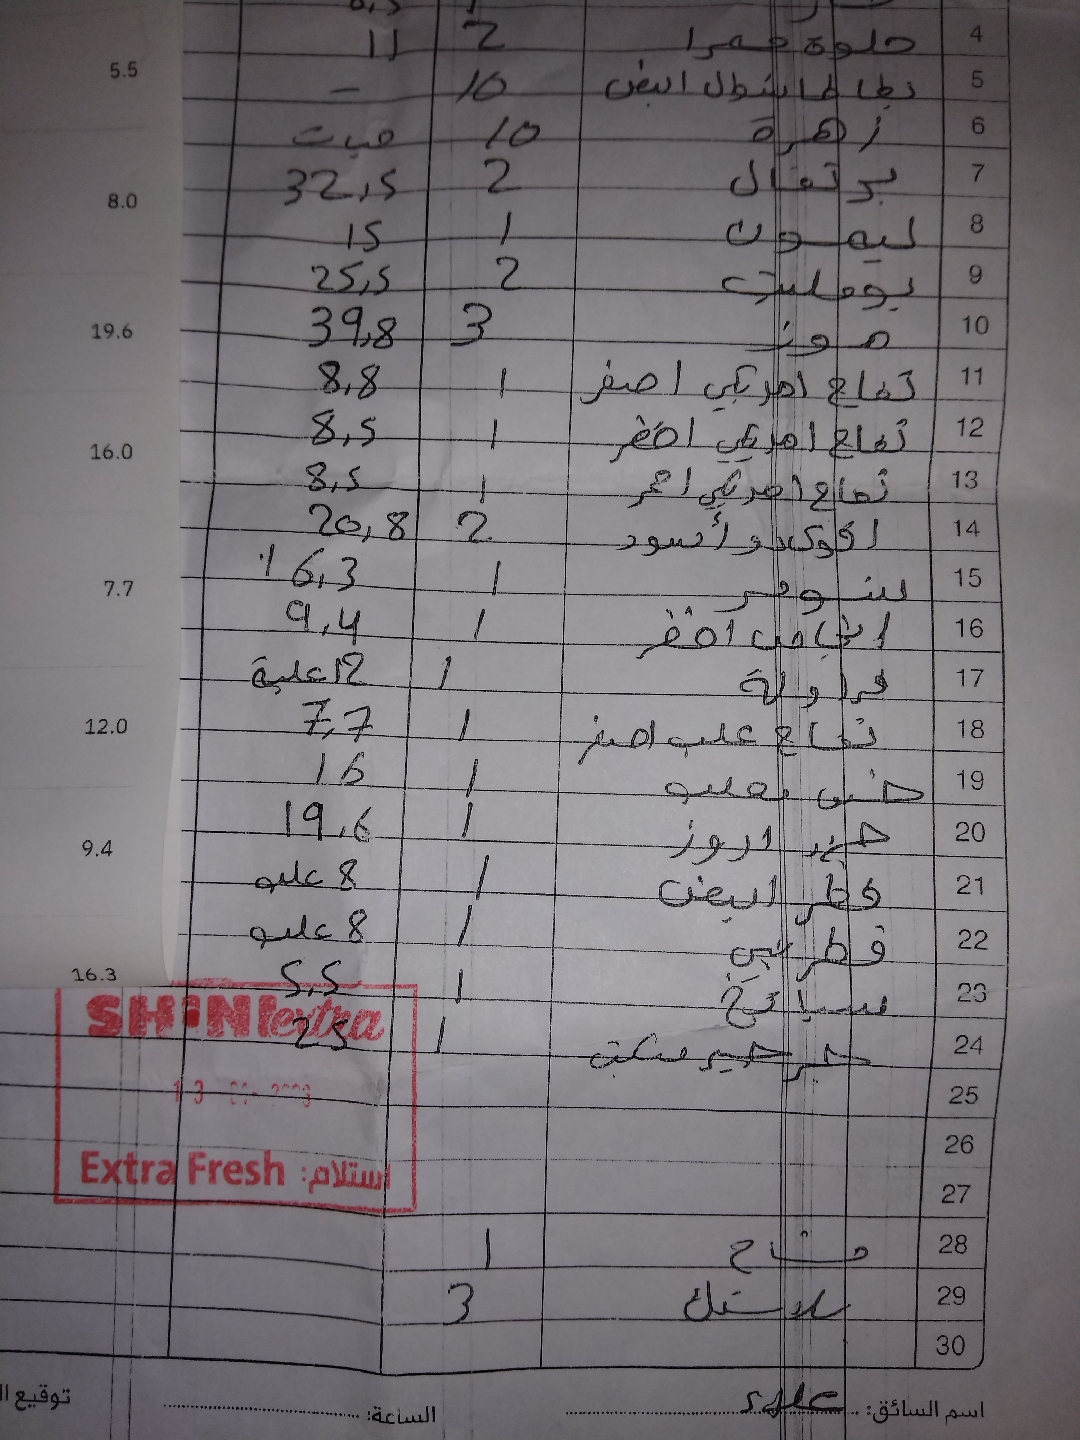 4 حلوة حمرا 2 11
5 بطاطا شوال ابيض 10 –
5.5
6 زهرة 10 حبات
7 برتقال 2 32,5
8.0
8 ليمون 1 15
9 بومليت 2 25,5
10 موز 3 39,8
19.6
11 تفاح امريكي اصفر 1 8,8
12 تفاح امريكي اخضر 1 8,5
16.0
13 تفاح امريكي احمر 1 8,5
14 افوكادو أسود 2 20,8
15 1 16,3
7.7
16 اجاص اخضر 1 9,4
17 فراولة 1 12 علبة
18 تفاح علب اصفر 1 7,7
12.0
19 1 16
20 1 19,6
9.4
21 فطر ابيض 1 8 علب
22 فطر بني 1 8 علب
23 سبانخ 1 5,5
16.3
24 1 25
SHINE extra
25
26
Extra Fresh استلام:
27
28 1
29 بلاستك 3
30
اسم السائق: علاء الساعة: توقيع